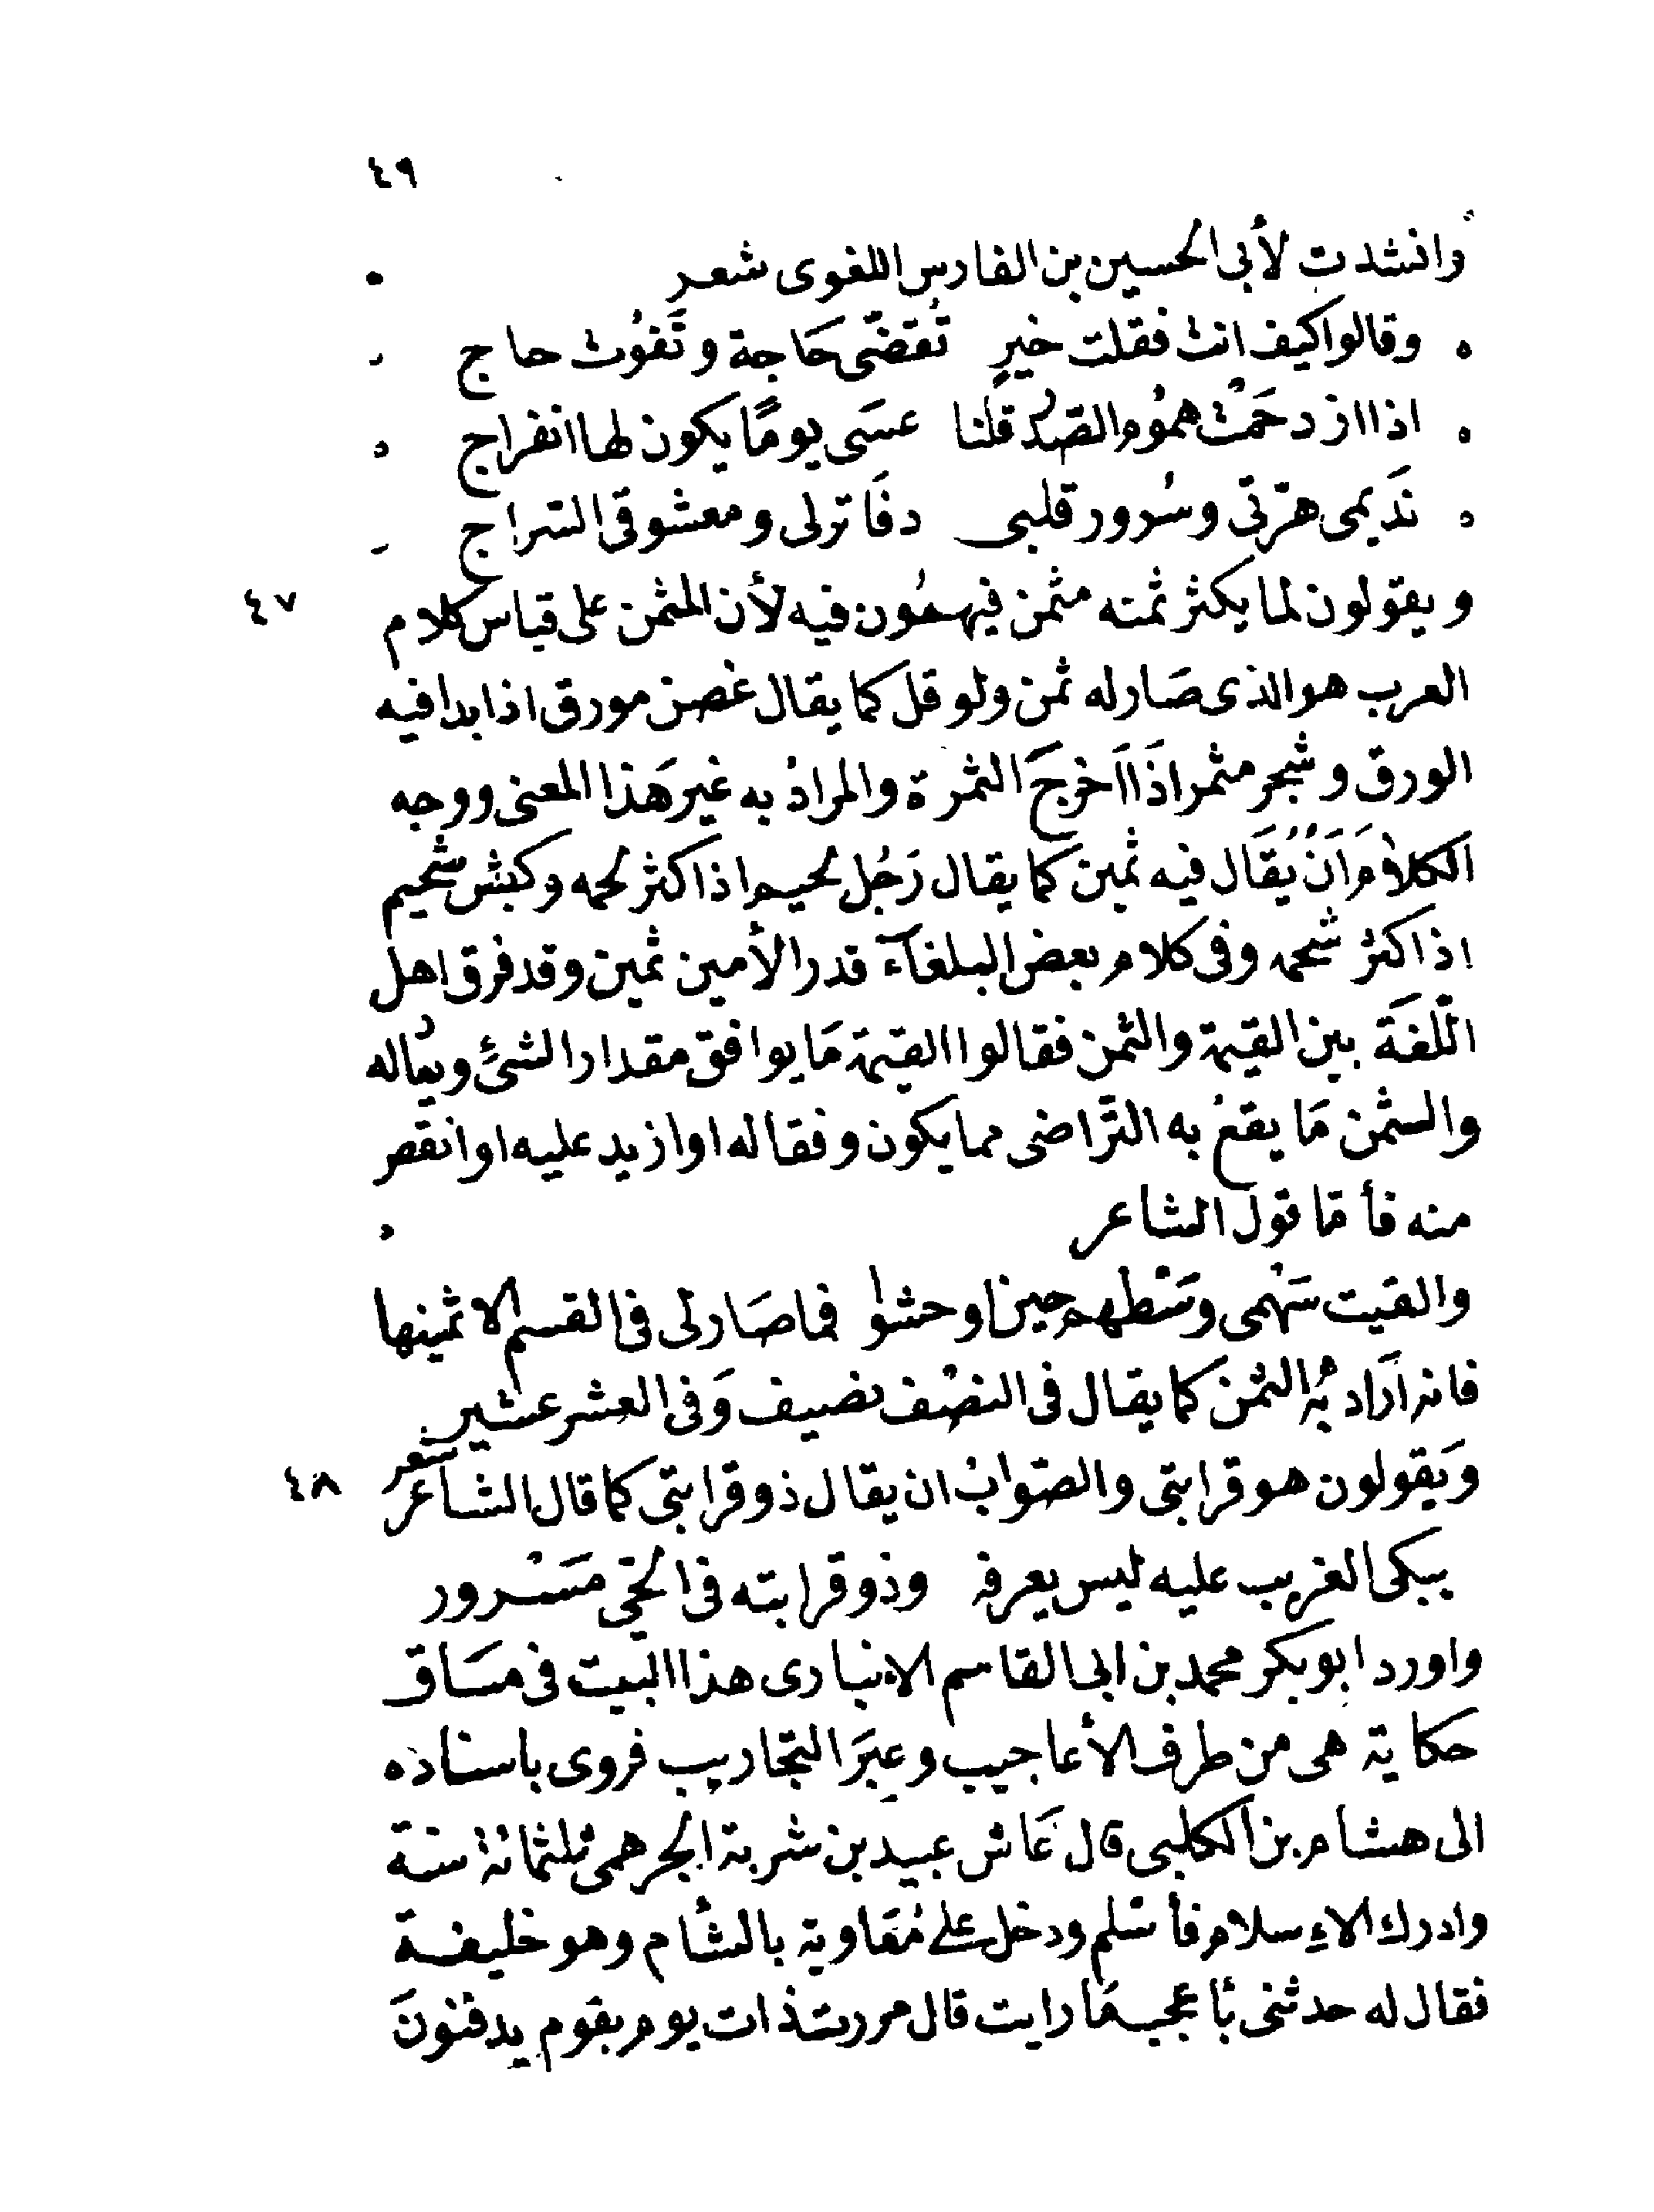 ٤٩
وانشدت لأبى الحسين بن الفارس اللغوى شعر
وقالوا كيف انت فقلت خير تُقضّى حَاجة وتَفوُت حاج
اذا ازدحَمَتْ همُوُم الصّدُر قلنا عسَى يومًا يكون لها انفراج
نَديمى هرّتى وسُرور قلبى دفَاتر لى ومعشوقى السّراج
ويقولون لما يكثر ثمنه مثمن فيهمُون فيه لأن المثمن على قياس كلام ٤٧
العرب هو الذى صَار له ثمن ولو قل كما يقال غصن مورق اذا بدا فيه
الورق وشجر مثمر اذَا اَخرجَ الثمرة والمرادُ به غير هَذا المعنى ووجه
الكلام اَنْ يُقَال فيه ثمين كما يقال رَجُل لحيم اذا كثر لحمه وكبش شحيم
اذا كثر شحمه وفى كلام بعض البلغآء قدر الأمين ثمين وقد فرق اهل
اللّغَة بين القيمة والثمن فقالوا القيمة مَا يوافق مقدار الشئ ويعادله
والثمن مَا يقعُ به التّراضى مما يكون وفقا له او ازيد عليه او انقص
منه فأمّا قول الشاعر
والقيت سَهْمى وسْطهم حين اوحشوا فما صَار لى فى القسم الا ثمينها
فانه اَرَاد بُه الثمُن كما يقال فى النصْف نصيف وَفى العشر عشير
شعر
وَيقولون هو قرابتى والصّوابُ ان يقال ذو قرابتى كما قال الشاعر ٤٨
يبكى الغريب عليه ليس يعرفه وذو قرابته فى الحَّى مَسْرور
واورد ابو بكر محمد بن ابى القاسم الانبارى هذا البيت فى مسَاق
حكاية هى من طرف الأعاجيب وعِبَر التجاريب فروى باسناده
الى هشام بن الكلبى قال عَاش عبيد بن شربة الجرهمى ثلثمائة سنة
وادرك الاءسلام فأسَلم ودخل على مُعَاوية بالشأم وهو خليفة
فقال له حدثنى بأعجب مَا رايت قال مررت ذات يوم بقوم يدفنونَ